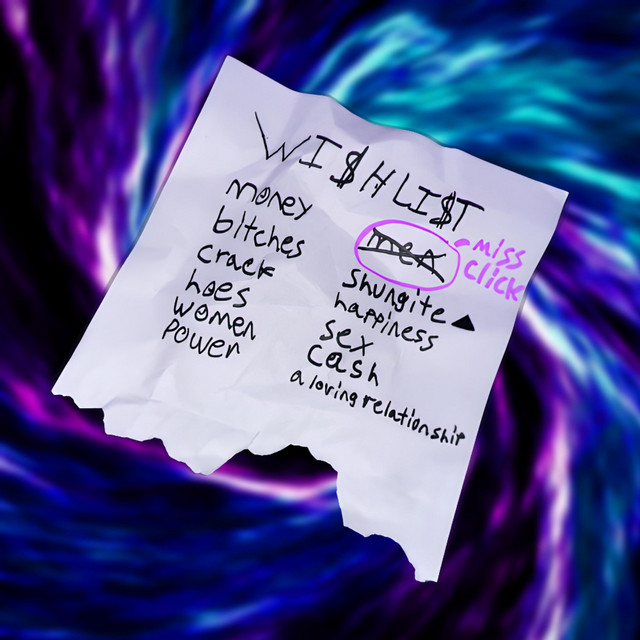 WI$HLI$T
money
bitches
crack
hoes
women
power
men
miss
click
shungite
happiness
sex
cash
a loving relationship